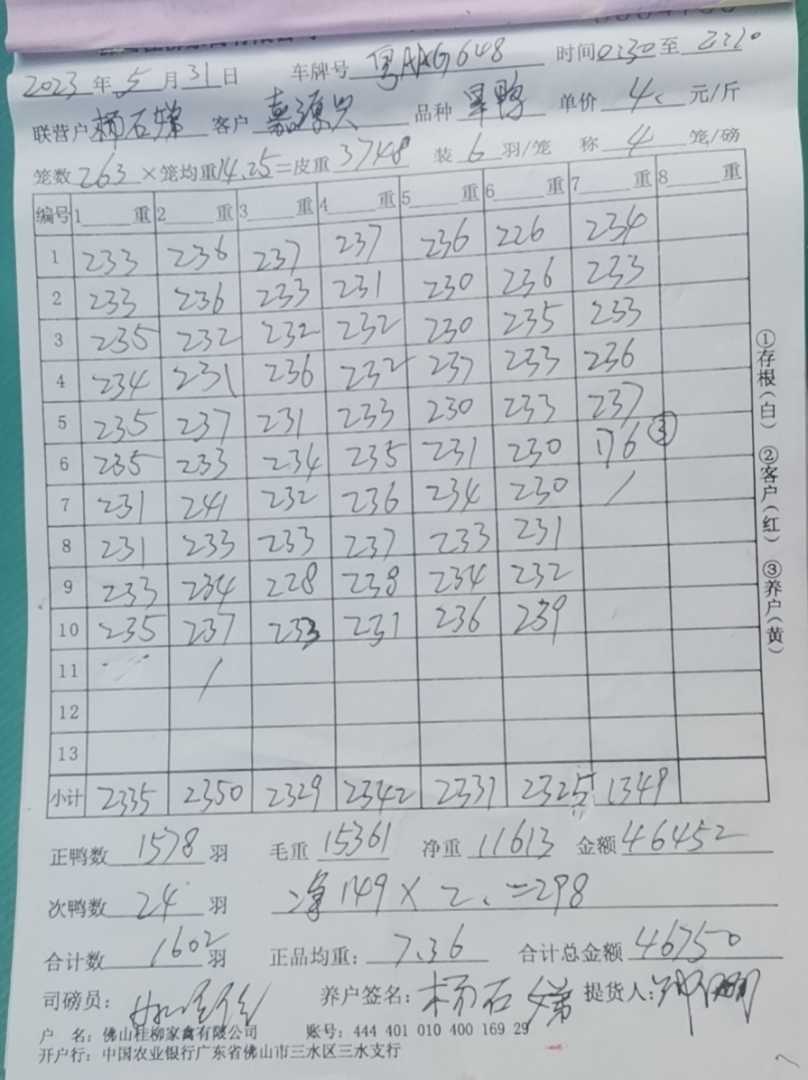 2023 年 5 月 31 日 车牌号 粤AAG648 时间 0230 至 2210
联营户 杨石娣 客户 嘉源兴 品种 旱鸭 单价 4. 元/斤
笼数 263 ×笼均重 14.25 =皮重 3748 装 6 羽/笼 称 4 笼/磅
编号 1 重 2 重 3 重 4 重 5 重 6 重 7 重 8 重
1 233 236 237 237 236 226 234
2 233 236 233 231 230 236 233
3 235 232 232 232 230 235 233
4 234 231 236 232 237 233 236
5 235 237 231 233 230 233 237
6 235 233 234 235 231 230 176 ③
7 231 241 232 236 234 230 /
8 231 233 233 237 233 231
9 233 234 228 238 234 232
10 235 237 233 231 236 239
11 /
12
13
小计 2335 2350 2329 2342 2331 2325 1349
正鸭数 1578 羽 毛重 15361 净重 11613 金额 46452
次鸭数 24 羽 净149×2.=298
合计数 1602 羽 正品均重: 7.36 合计总金额 46750
司磅员: 养户签名: 杨石娣 提货人:
户 名: 佛山桂柳家禽有限公司 账号: 444 401 010 400 169 29
开户行: 中国农业银行广东省佛山市三水区三水支行
①存根(白) ②客户(红) ③养户(黄)